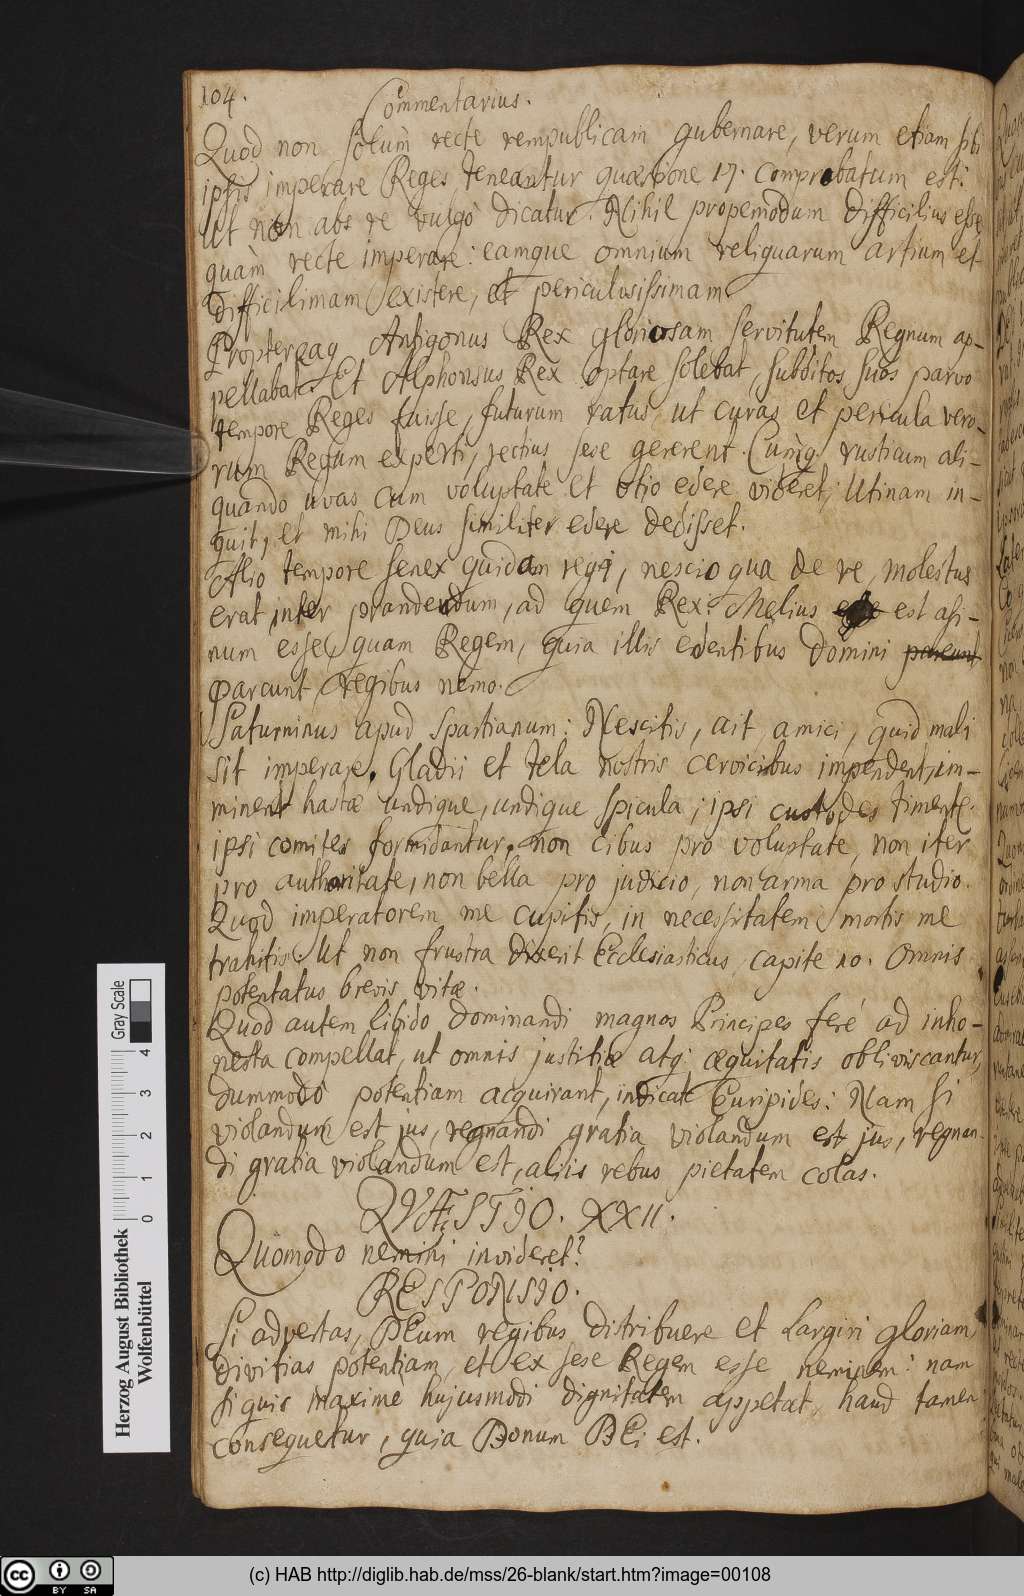 104.
Commentarius.
Quod non solum recte rempublicam gubernare, verum etiam sibi
ipsis imperare Reges teneantur quæstione 17. comprobatum est:
ut non abs re vulgò dicatur: Nihil propemodum difficilius esse,
quàm recte imperare: eamque omnium reliquarum artium et
difficilimam existere, et periculosissimam.
Propterea Antigonus Rex gloriosam servitutem Regnum ap-
pellabat. Et Alphonsus Rex optare solebat, subditos suos parvo
tempore Reges fuisse, futurum ratus, ut curas et pericula vero-
rum Regum experti, rectius sese gererent. Cumq. rusticum ali-
quando uvas cum voluptate et otio edere videret; Utinam in-
quit, et mihi Deus similiter edere dedisset.
Alio tempore senex quidam regi, nescio qua de re, molestus
erat inter prandendum, ad quem Rex: Melius esse est asi-
num esse, quam Regem, quia illis edentibus domini parcunt
parcunt, regibus nemo.
Saturninus apud Spartianum: Nescitis, ait, amici, quid mali
sit imperare. Gladii et tela nostris cervicibus impendent, im-
minent hastæ undique, undique spicula; ipsi custodes timentr.
ipsi comites formidantur. non cibus pro voluptate, non iter
pro authoritate, non bella pro judicio, non arma pro studio.
Quod imperatorem me cupitis, in necessitatem mortis me
trahitis. Ut non frustra dixerit Ecclesiasticus, capite 10. Omnis
potentatus brevis vitæ.
Quod autem libido dominandi magnos Principes feré ad inho-
nesta compellat, ut omnis justitiæ atq; æquitatis obliviscantur,
dummodo potentiam acquirant, indicat Euripides: Nam si
violandum est jus, regnandi gratia violandum est jus, regnan-
di gratia violandum est, aliis rebus pietatem colas.
QVÆSTIO. XXII.
Quomodo nemini invideret?
RESPONSIO.
Si advertas, DEum regibus distribuere et largiri gloriam,
divitias potentiam, et ex sese Regem esse neminem: nam
si quis maximè hujusmodi dignitatem appetat, haud tamen
consequetur, quia Donum DEi est.
Herzog August Bibliothek
Wolfenbüttel
0 1 2 3 4
Gray Scale
BY SA
(c) HAB http://diglib.hab.de/mss/26-blank/start.htm?image=00108